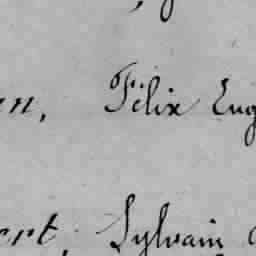 en, Félix Eug
ert, Sylvain